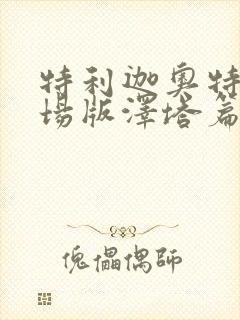 特利迦奥特
场版泽塔篇
傀儡偶師